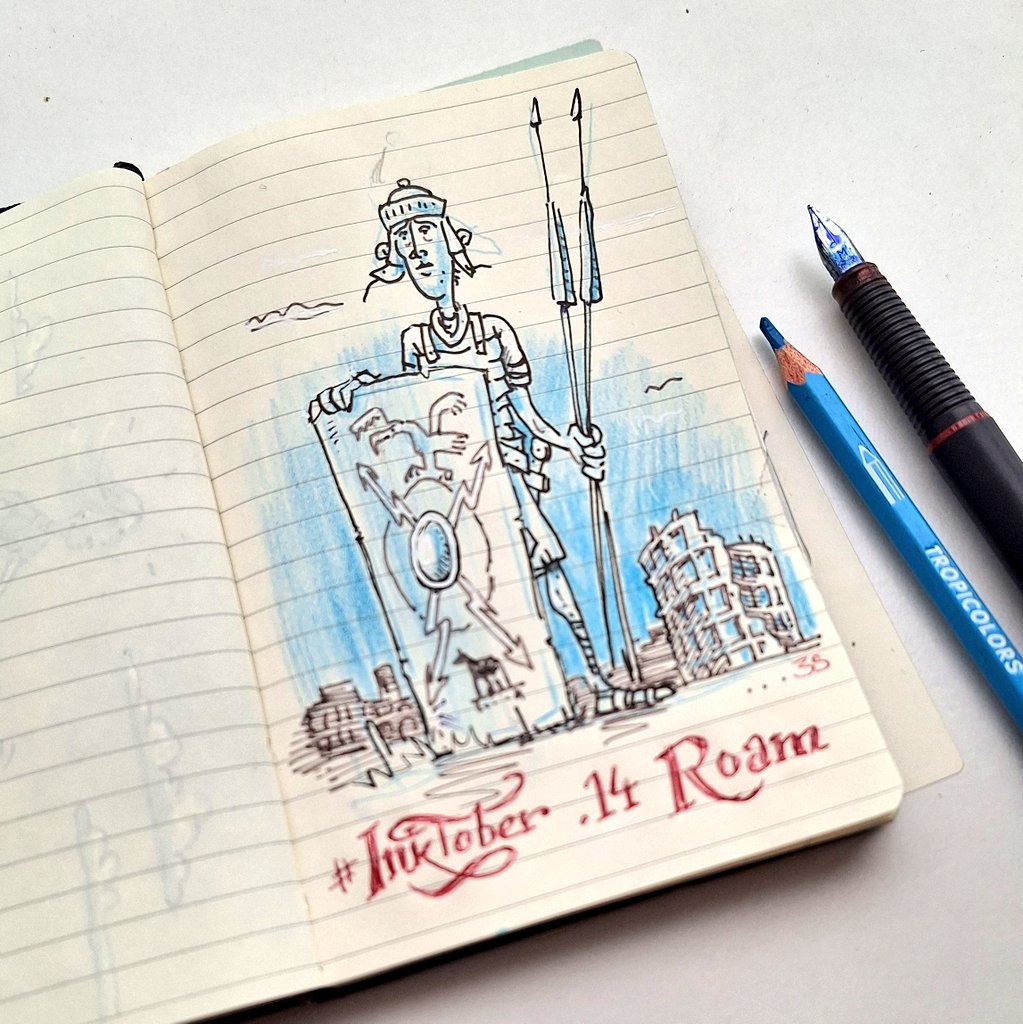 ...38
#InkTober .14 Roam
TROPICOLORS